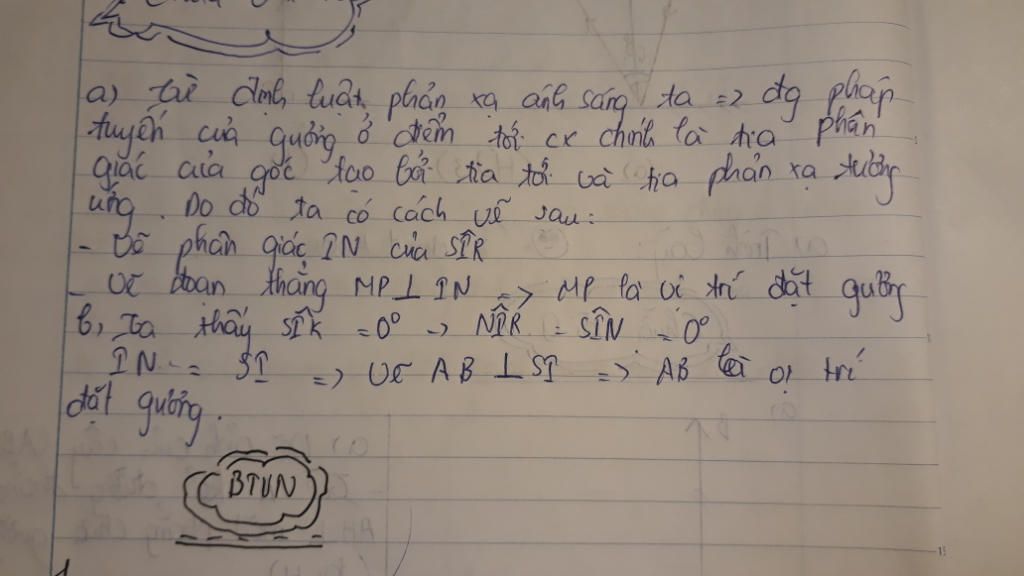 a) từ định luật phản xạ ánh sáng ta => đg pháp
tuyến của gương ở điểm tới cx chính là tia phân
giác của góc tạo bởi tia tới và tia phản xạ tương
ứng. Do đó ta có cách vẽ sau:
- Vẽ phân giác IN của SÎR
- Vẽ đoạn thẳng MP ⊥ IN => MP là vị trí đặt gương
b, Ta thấy SÎR = 0° -> NÎR = SÎN = 0°
IN = SI => Vẽ AB ⊥ SI => AB là vị trí
đặt gương.
BTVN